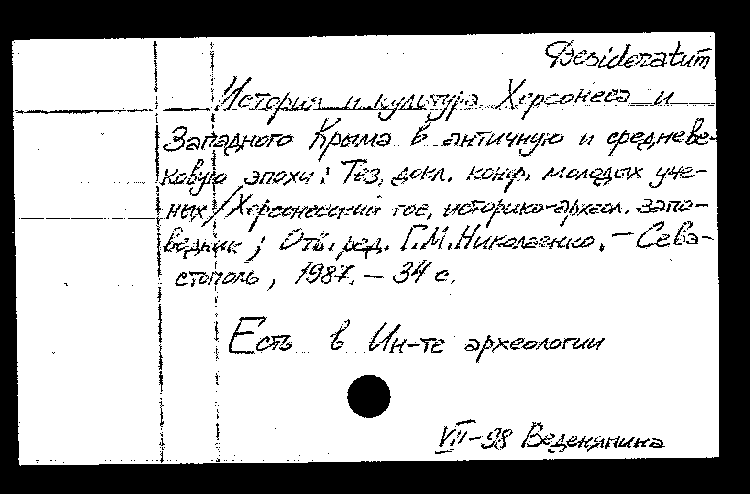 Desideratum
История и культура Херсонеса и
Западного Крыма в античную и средневе-
ковую эпохи: Тез. докл. конф. молодых уче-
ных / Херсонесский гос. историко-археол. запо-
ведник; Отв. ред. Г.М. Николаенко. – Сева-
стополь, 1987. – 34 с.
Есть в Ин-те археологии
VII-98 Веденяпина